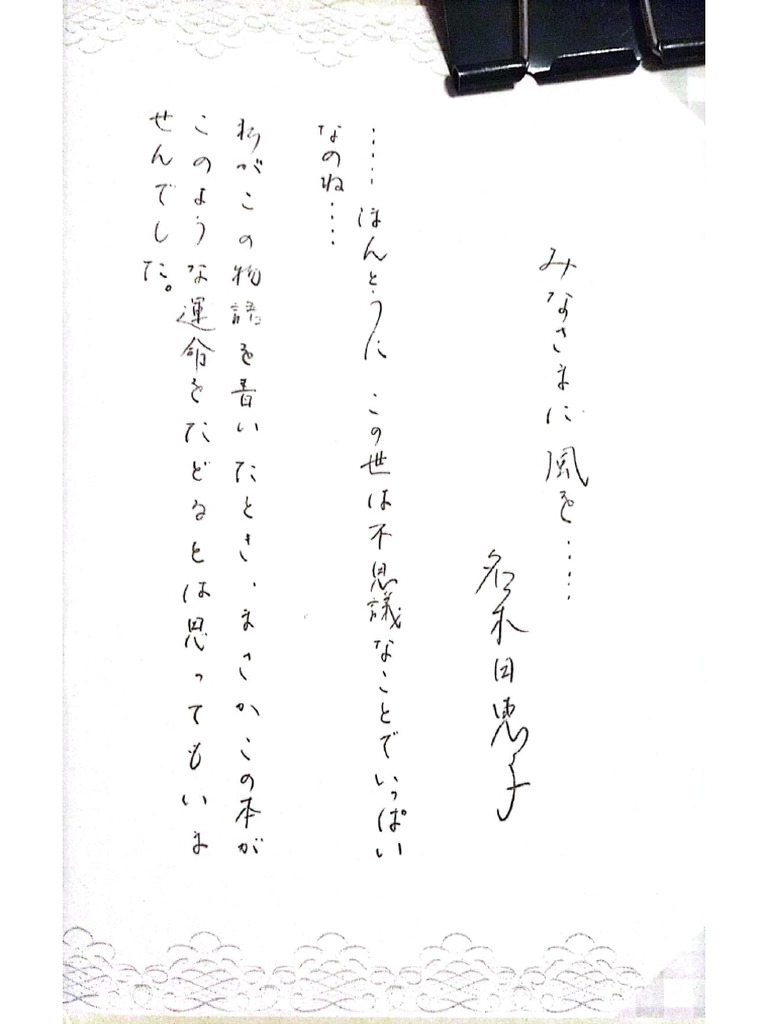 みなさまに風を……
名木田恵子
……ほんとうにこの世は不思議なことでいっぱい
なのね……
私がこの物語を書いたとき、まさかこの本が
このような運命をたどるとは思ってもいま
せんでした。